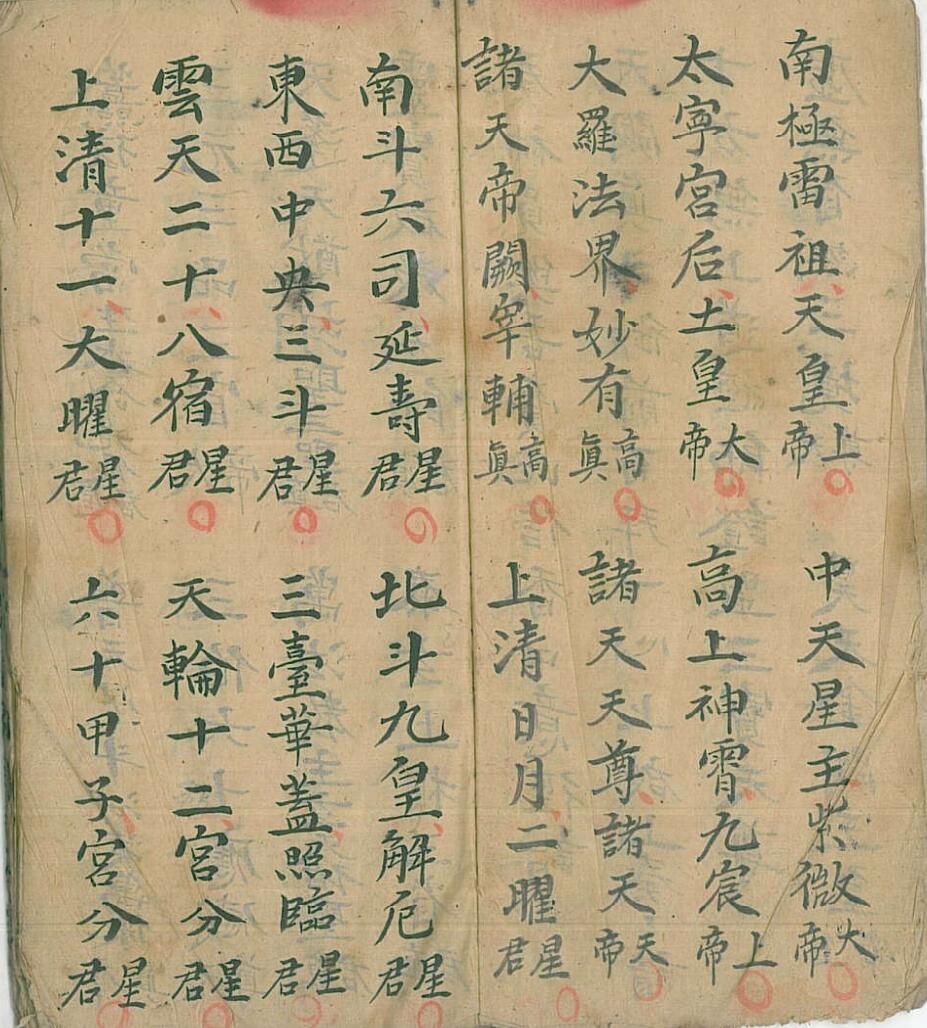 南極雷祖天皇上帝
中天星主紫微大帝
太寧宮后土皇大帝
高上神霄九宸上帝
大羅法界妙有高眞
諸天天尊諸天天帝
諸天帝闕宰輔高眞
上清日月二曜星君
南斗六司延壽星君
北斗九皇解厄星君
東西中央三斗星君
三臺華蓋照臨星君
雲天二十八宿星君
天輪十二宮分星君
上清十一大曜星君
六十甲子宮分星君